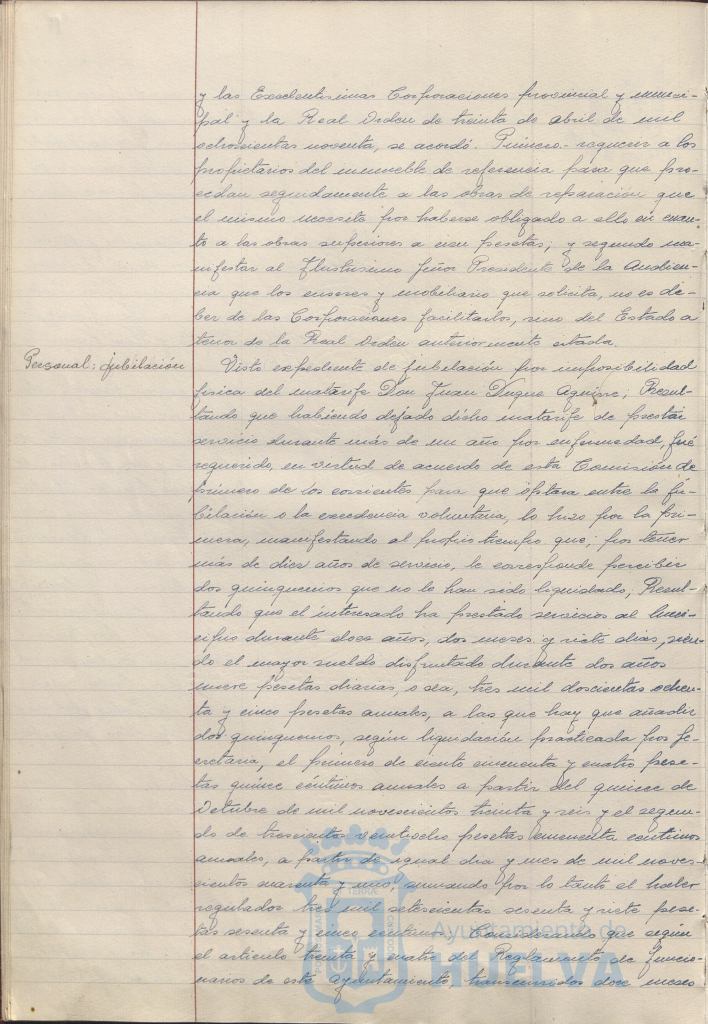 y las Excelentisimas Corporaciones provincial y munici-
pal y la Real Orden de treinta de abril de mil
ochocientos noventa, se acordó: Primero- requerir a los
propietarios del inmueble de referencia para que pro-
cedan seguidamente a las obras de reparación que
el mismo necesite por haberse obligado a ello en cuan-
to a las obras superiores a cien pesetas; y segundo ma-
nifestar al Ilustrisimo Señor Presidente de la Audien-
cia que los enseres y mobiliario que solicita, no es de-
ber de las Corporaciones facilitarlos, sino del Estado a
tenor de la Real Orden anteriormente citada.
Personal: jubilación
Visto expediente de jubilación por imposibilidad
fisica del matarife Don Juan Duque Aguirre; Resul-
tando que habiendo dejado dicho matarife de prestar
servicio durante más de un año por enfermedad, fué
requerido, en virtud de acuerdo de esta Comisión de
primero de los corrientes para que optara entre la ju-
bilación o la excedencia voluntaria, lo hizo por la pri-
mera, manifestando al propio tiempo que, por tener
más de diez años de servicio, le corresponde percibir
dos quinquenios que no le han sido liquidado; Resul-
tando que el interesado ha prestado servicios al Muni-
cipio durante doce años, dos meses y siete dias, sien-
do el mayor sueldo disfrutado durante dos años
nueve pesetas diarias, o sea, tres mil doscientas ochen-
ta y cinco pesetas anuales, a las que hay que añadir
dos quinquenios, según liquidación practicada por Se-
cretaria, el primero de ciento cincuenta y cuatro pese-
tas quince céntimos anuales a partir del quince de
Octubre de mil novecientos treinta y seis y el segun-
do de trescientas veintiocho pesetas cincuenta centimos
anuales, a partir de igual dia y mes de mil noves-
cientos cuarenta y uno, sumando por lo tanto el haber
regulador tres mil setecientas sesenta y siete pese-
tas sesenta y cinco centimos. Considerando que según
el articulo treinta y cuatro del Reglamento de funcio-
narios de este Ayuntamiento, transcurridos doce meses
Ayuntamiento de
HUELVA